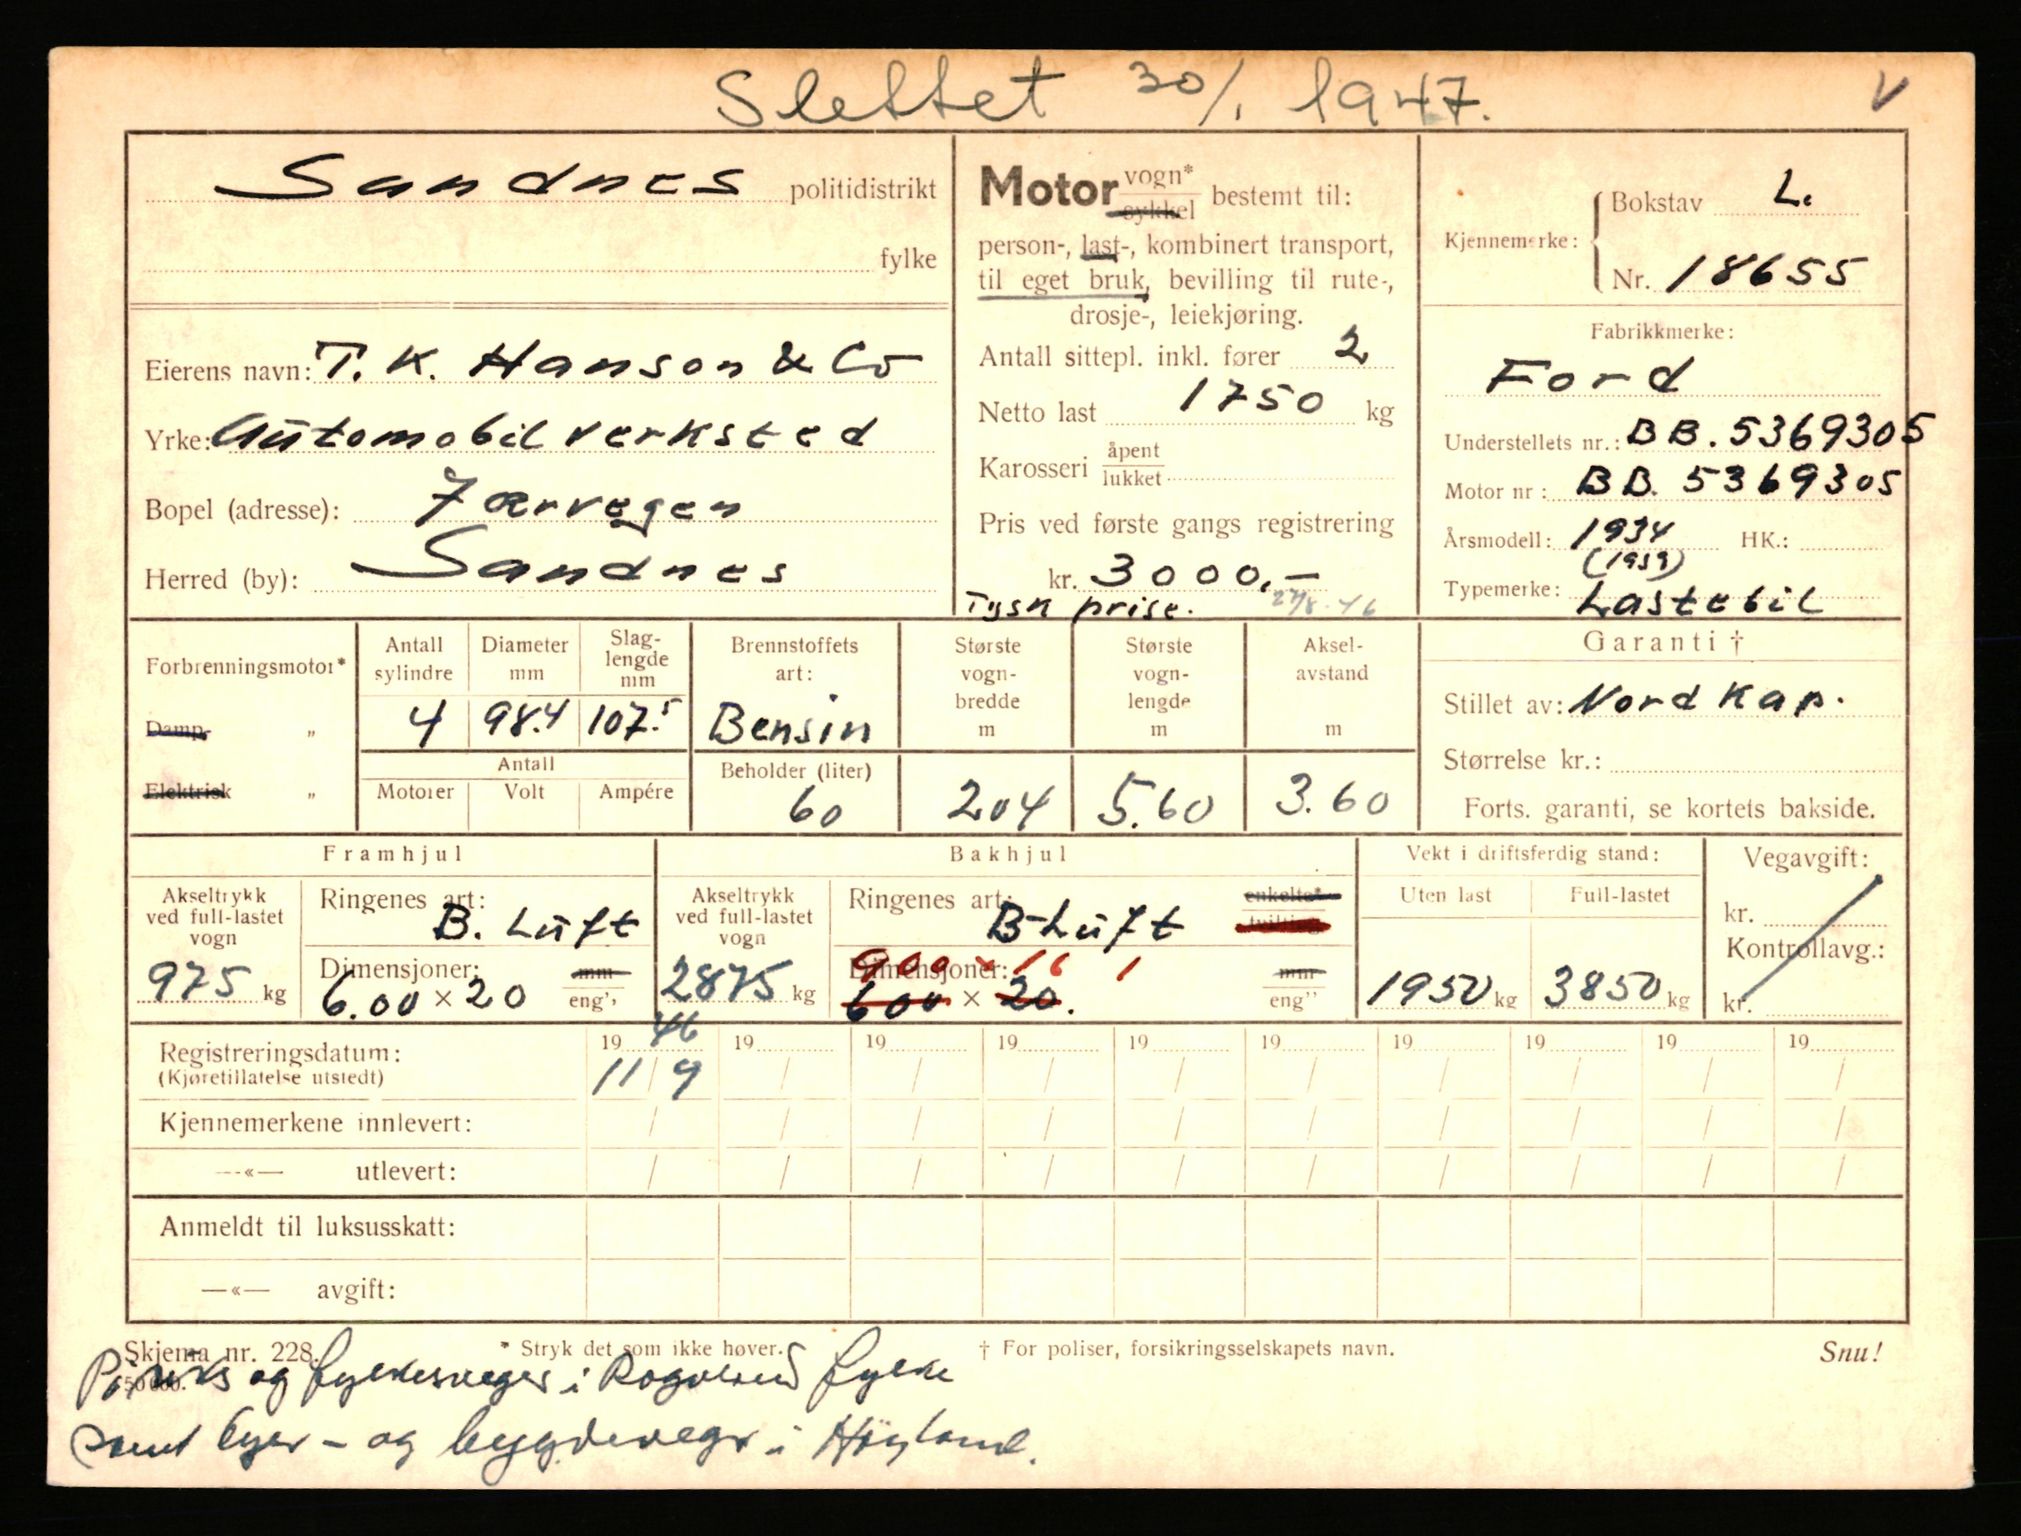 Slettet 30/1 1947. V
Sandnes politidistrikt
fylke
Eierens navn: T. K. Hanson & Co
Yrke: Automobilverksted
Bopel (adresse): Jærvegen
Herred (by): Sandnes
Motor vogn* sykkel bestemt til:
person-, last-, kombinert transport,
til eget bruk, bevilling til rute-,
drosje-, leiekjøring.
Antall sittepl. inkl. fører 2
Netto last 1750 kg
Karosseri åpent lukket
Pris ved første gangs registrering
kr. 3000,-
Tysk prise. 27/8-46
Kjennemerke: Bokstav L.
Nr. 18655
Fabrikkmerke:
Ford
Understellets nr.: BB. 5369305
Motor nr: BB. 5369305
Årsmodell: 1934 HK.:
(1939)
Typemerke: Lastebil
Forbrenningsmotor*
Damp- „
Elektrisk „
Antall sylindre
4
Diameter mm
98.4
Slag-lengde mm
107.5
Antall
Motorer Volt Ampére
Brennstoffets art:
Bensin
Beholder (liter)
60
Største vogn-bredde m
204
Største vogn-lengde m
5.60
Aksel-avstand m
3.60
Garanti †
Stillet av: Nord Kap.
Størrelse kr.:
Forts. garanti, se kortets bakside.
Framhjul
Akseltrykk
ved full-lastet
vogn
975 kg
Ringenes art:
B. Luft
Dimensjoner: mm
6.00 × 20 eng''
Bakhjul
Akseltrykk
ved full-lastet
vogn
2875 kg
Ringenes art: enkelte*
B-Luft tvilling
900 × 16 1
Dimensjoner: mm
600 × 20. eng''
Vekt i driftsferdig stand:
Uten last Full-lastet
1950 kg 3850 kg
Vegavgift:
kr.
Kontrollavg.:
kr.
Registreringsdatum: 19 46 19 19 19 19 19 19 19 19 19
(Kjøretillatelse utstedt) 11/9 / / / / / / / / /
Kjennemerkene innlevert: / / / / / / / / / /
—«— utlevert: / / / / / / / / / /
Anmeldt til luksusskatt:
—«— avgift:
Skjema nr. 228. * Stryk det som ikke høver. † For poliser, forsikringsselskapets navn. Snu!
50 000.
og fylkesveger i Rogaland fylke
samt byer - og bygdeveger i Høyland.